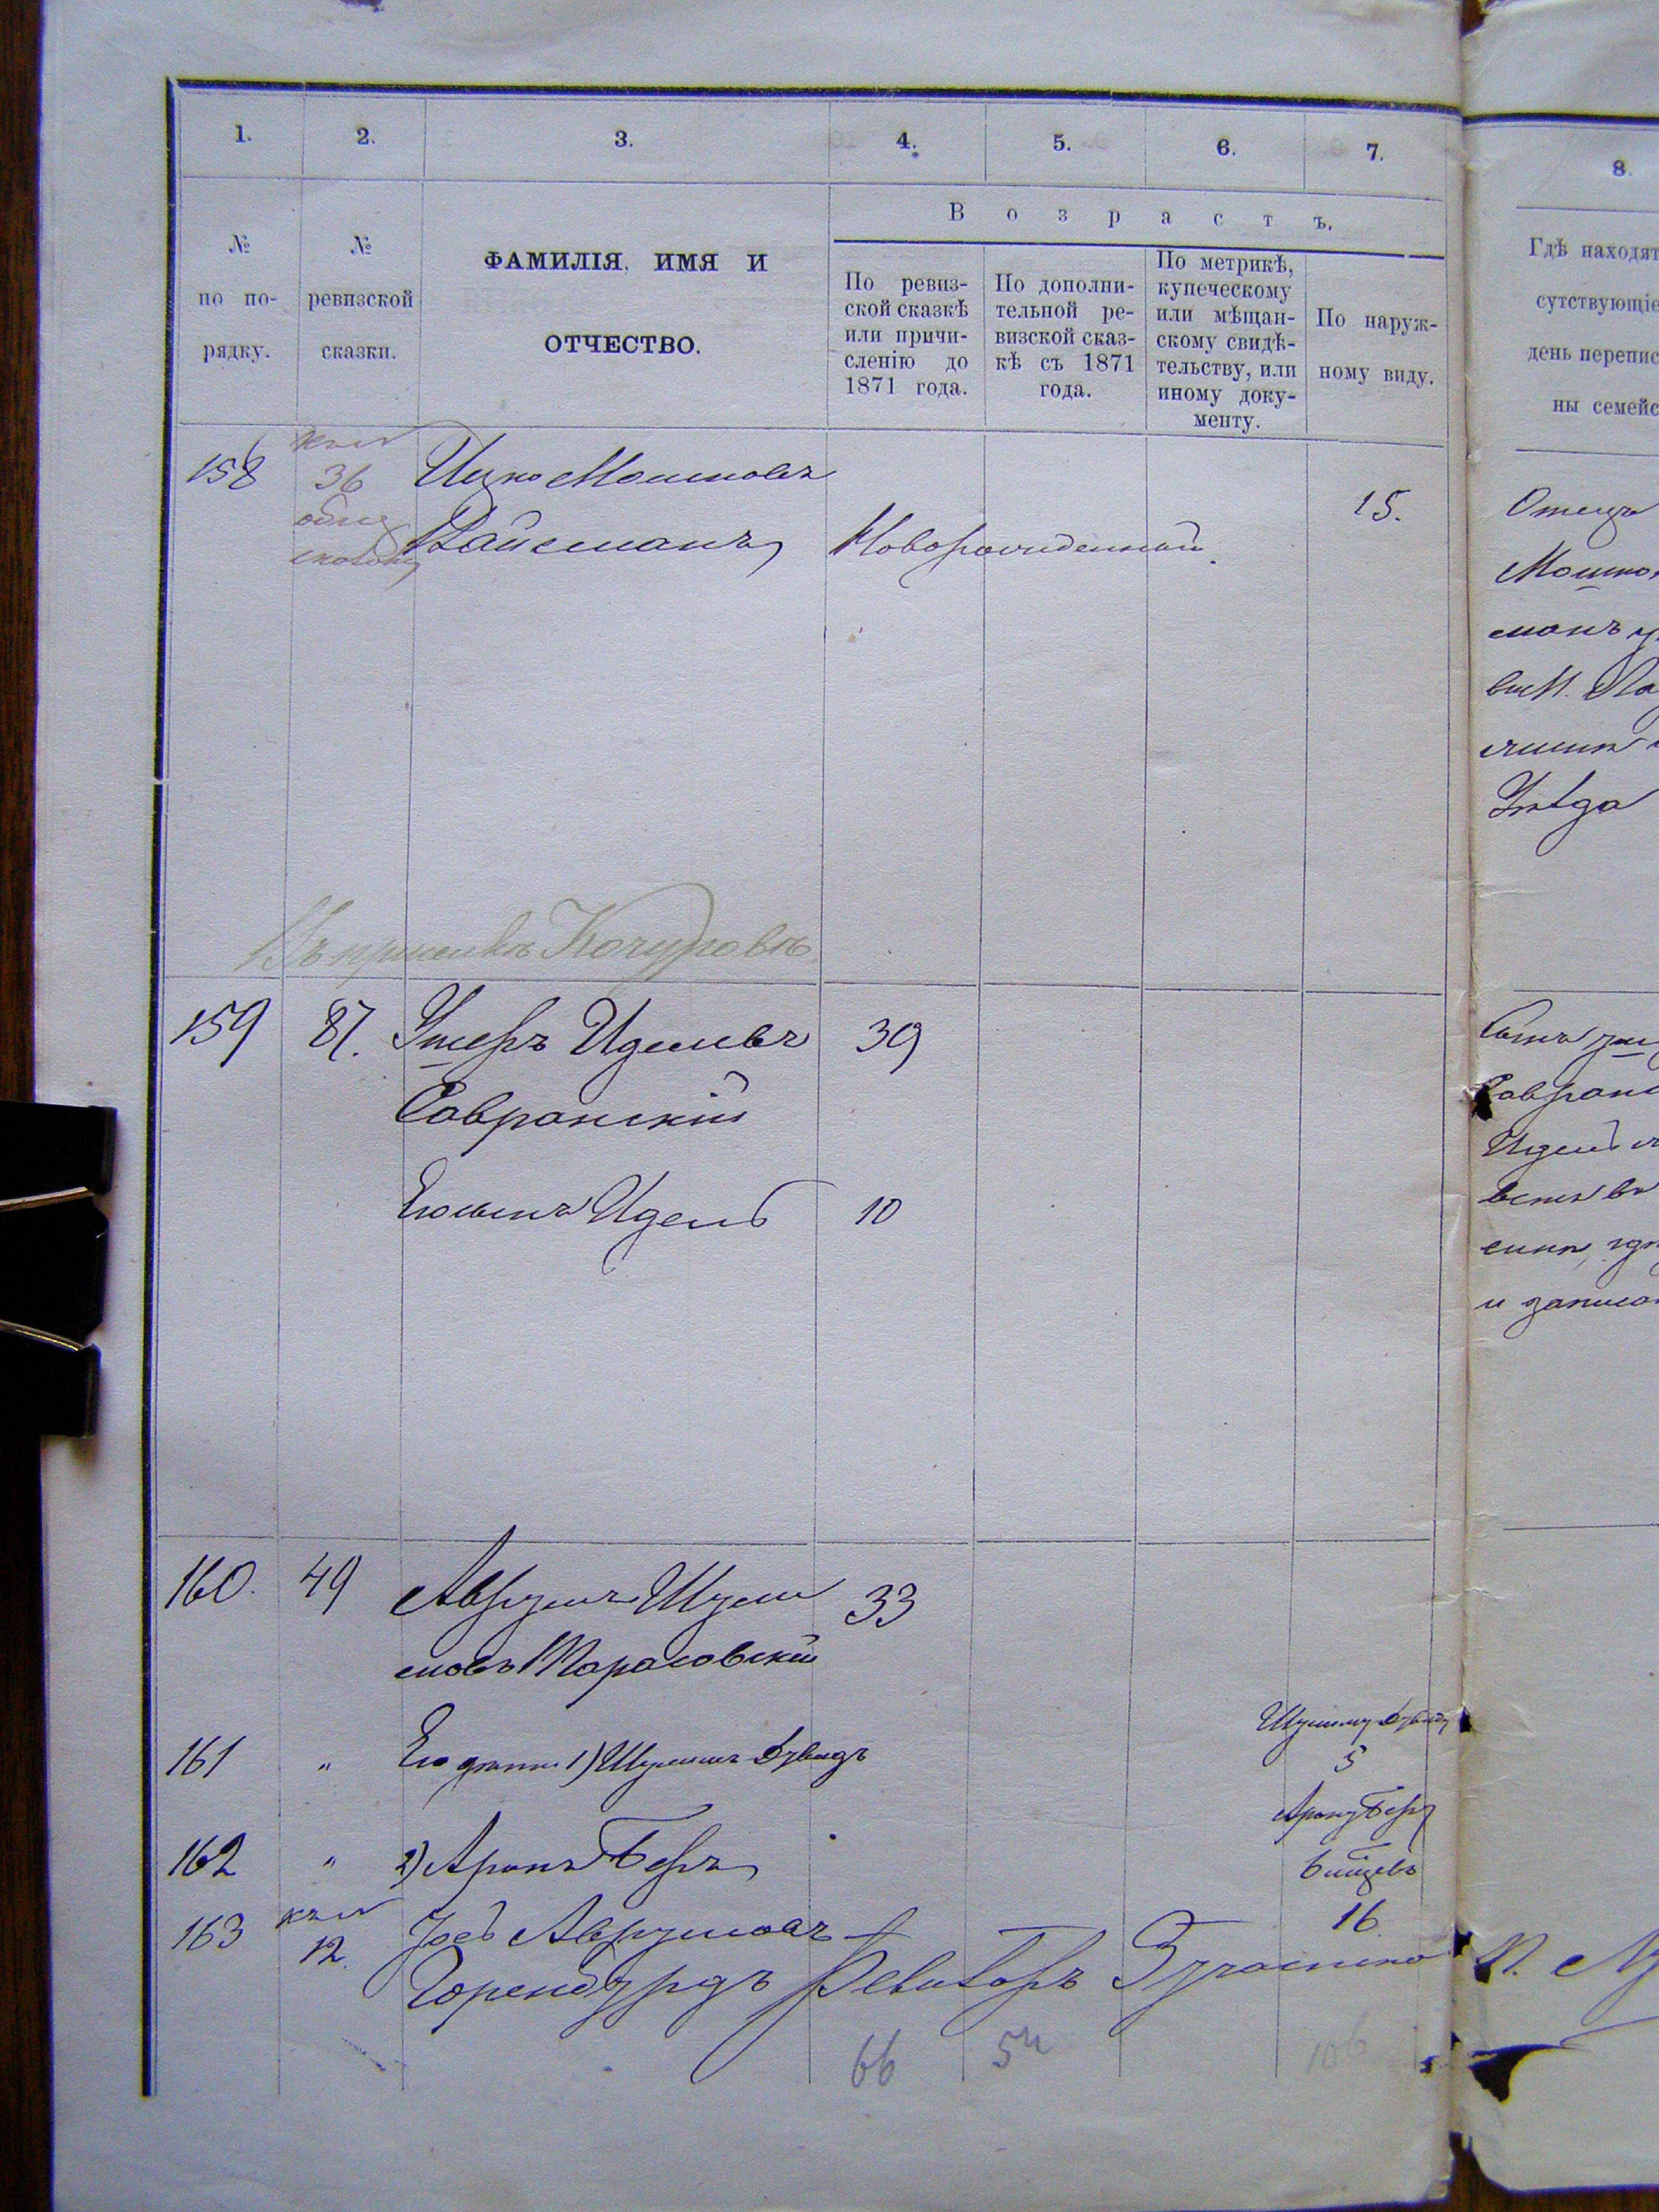 1. 2. 3. 4. 5. 6. 7. 8.
№ по по-рядку.
№ ревизской сказки.
ФАМИЛІЯ, ИМЯ И
ОТЧЕСТВО.
Возрастъ.
По ревиз-
ской сказкѣ
или причи-
сленію до
1871 года.
По дополни-
тельной ре-
визской сказ-
кѣ съ 1871
года.
По метрикѣ,
купеческому
или мѣщан-
скому свидѣ-
тельству, или
иному доку-
менту.
По наруж-
ному виду.
Гдѣ находят
сутствующіе
день перепис
ны семейс
158 36 Ицко Мошковъ 15.
Вайсманъ Новорожденный.
Отецъ
Мошко
манъ
Уѣзда
Въ приселкѣ Кочуровкѣ
159 87. Умеръ Иделевъ 39
Савранскій
Его сынъ Идель 10
Сынъ
Савранс
Идель
и записан
160. 49 Аврумъ Шули 33
мовъ Тарасовскій
161 " Его дѣти 1) Шулимъ Дувидъ
Шулиму Дувиду
5
162 " 2) Аронъ Беръ
Арону Беру
6 мѣсцевъ
163 12. Іосъ Аврумовъ 16
Горенбургъ
66 54 106